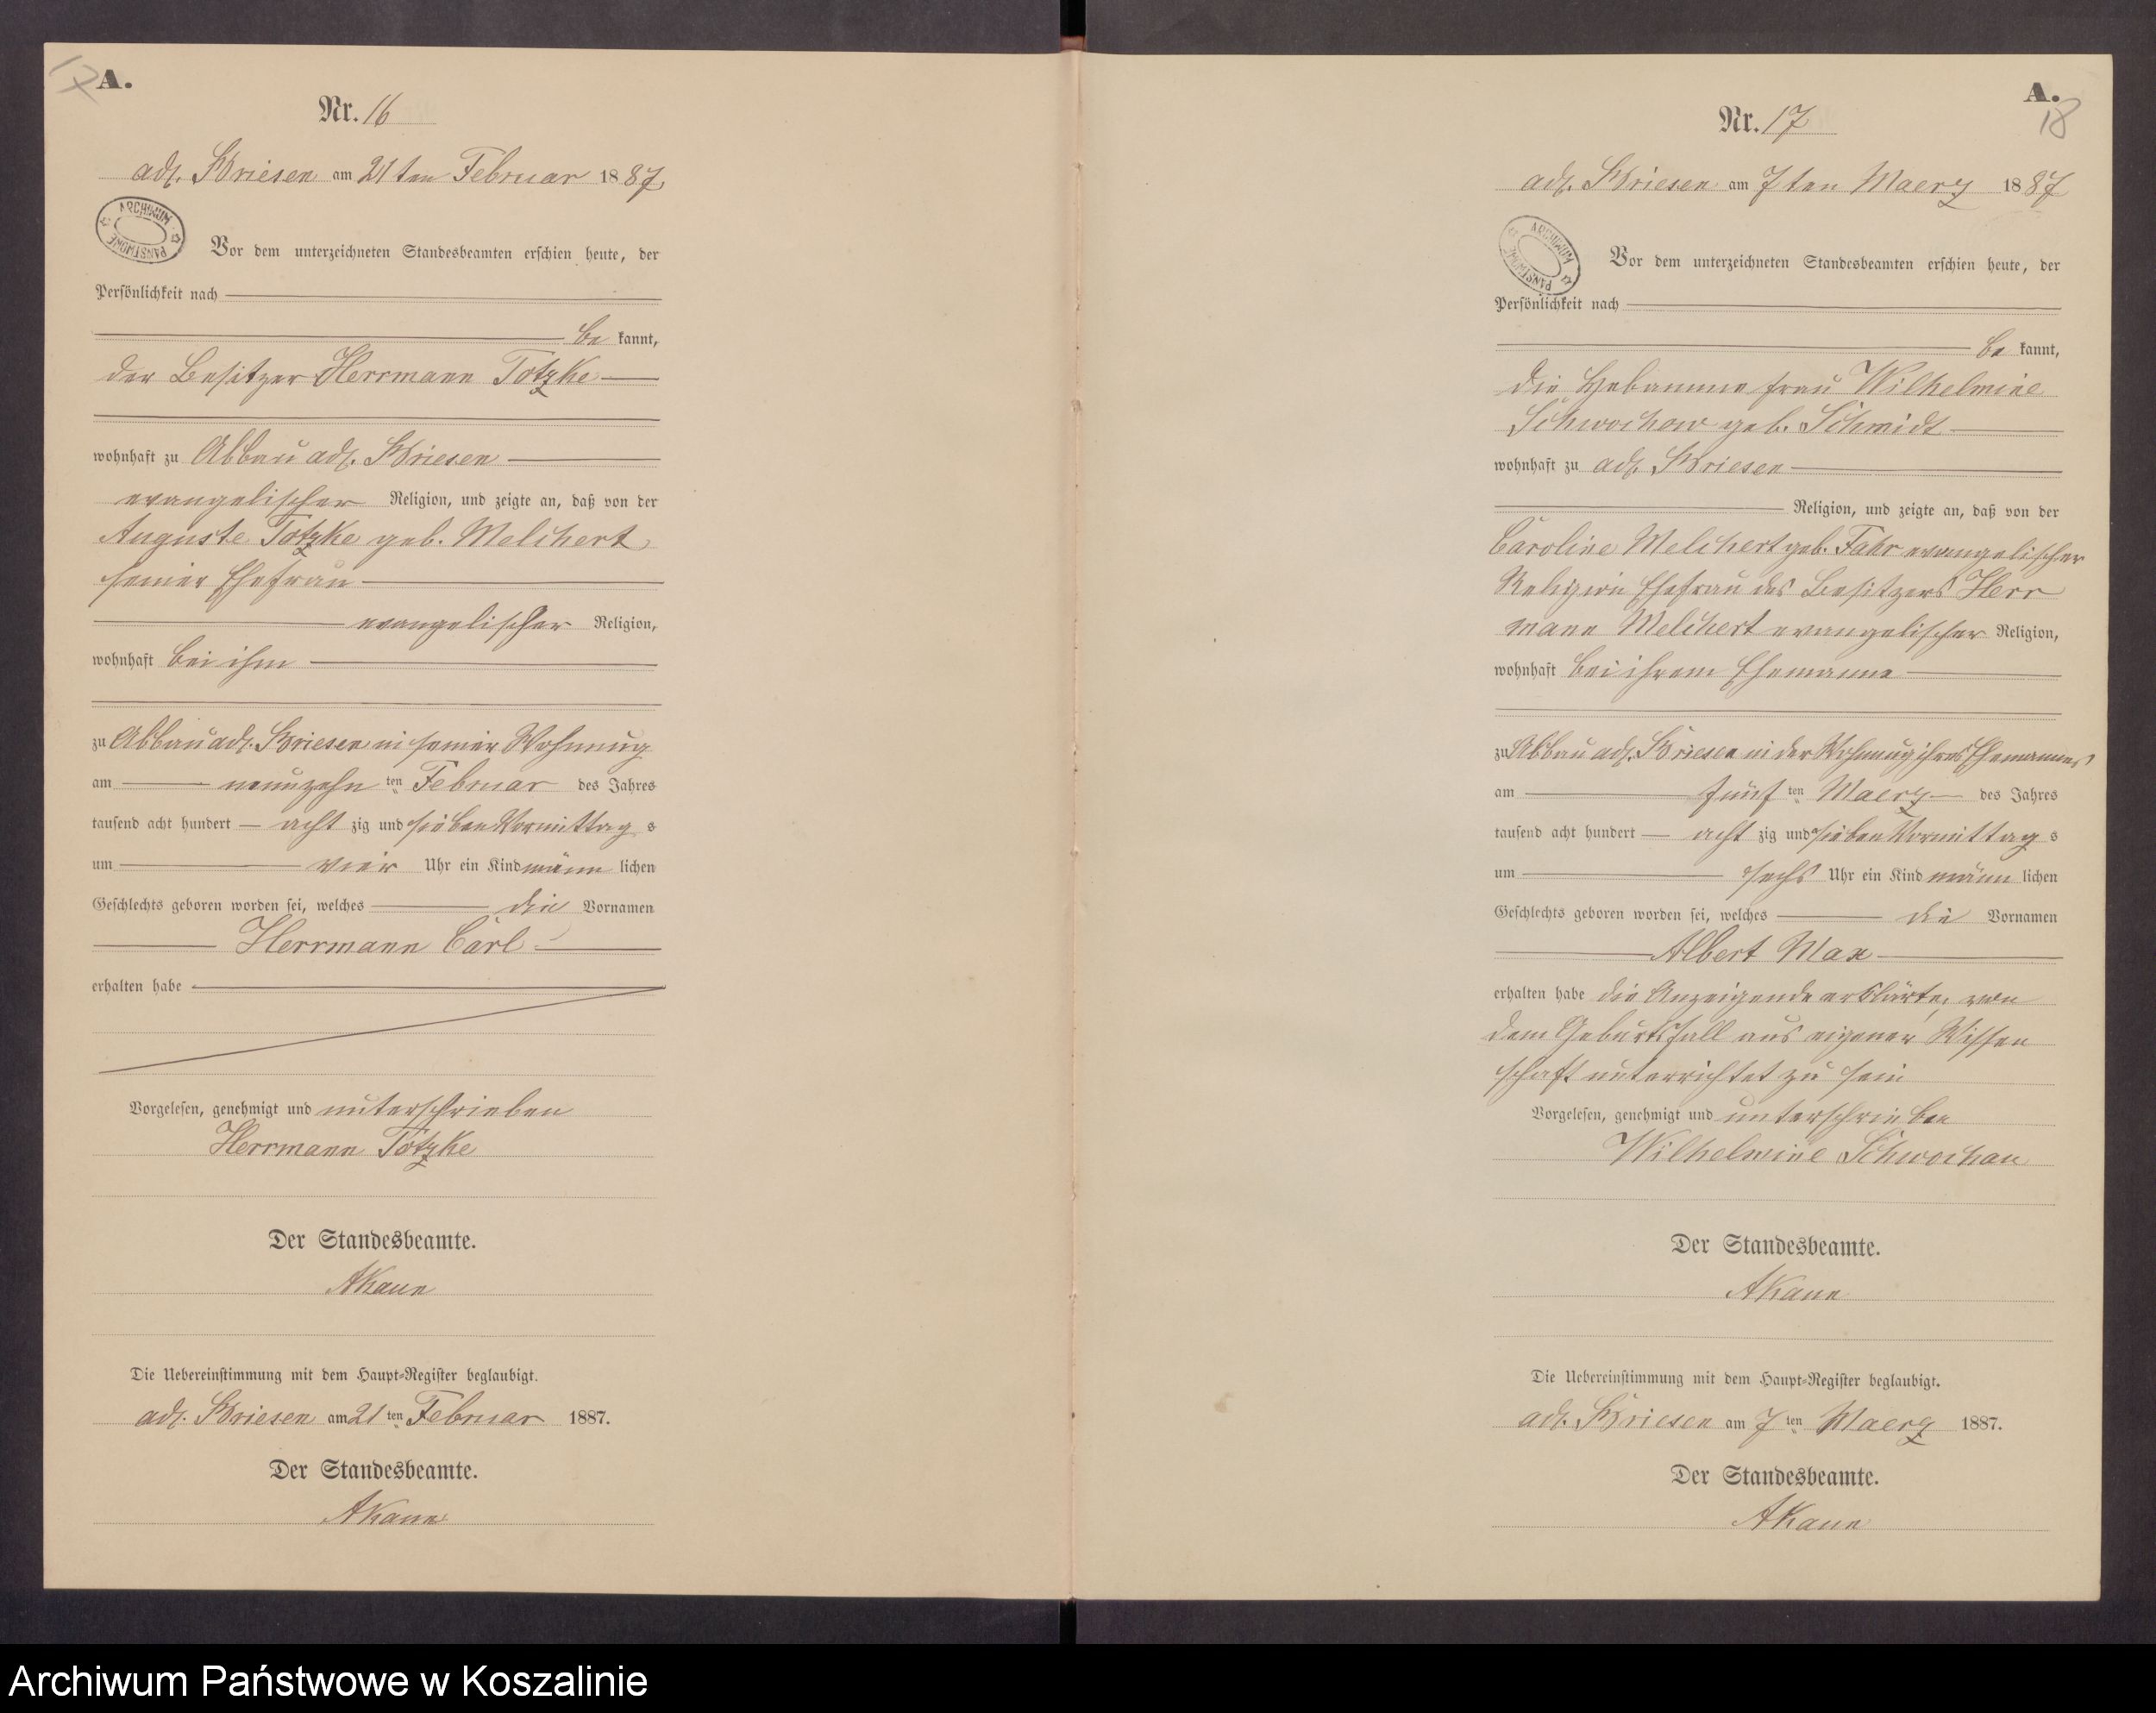 17
A.
Nr. 16
adl. Briesen am 21ten Februar 1887
ARCHIWUM PAŃSTWOWE
Vor dem unterzeichneten Standesbeamten erschien heute, der
Persönlichkeit nach
be kannt,
der Besitzer Herrmann Totzke
wohnhaft zu Abbau adl. Briesen
evangelischer Religion, und zeigte an, daß von der
Auguste Totzke geb. Melchert
seiner Ehefrau
evangelischer Religion,
wohnhaft bei ihm
zu Abbau adl. Briesen in seiner Wohnung
am neunzehn ten Februar des Jahres
tausend acht hundert acht zig und sieben Vormittag s
um vier Uhr ein Kind männ lichen
Geschlechts geboren worden sei, welches die Vornamen
Herrmann Carl
erhalten habe
Vorgelesen, genehmigt und unterschrieben
Herrmann Totzke
Der Standesbeamte.
Die Uebereinstimmung mit dem Haupt-Register beglaubigt.
adl. Briesen am 21 ten Februar 1887.
Der Standesbeamte.
A.
18
Nr. 17
adl. Briesen am 7ten Maerz 1887
ARCHIWUM PAŃSTWOWE
Vor dem unterzeichneten Standesbeamten erschien heute, der
Persönlichkeit nach
be kannt,
die Hebamme Frau Wilhelmine
Schwochow geb. Schmidt
wohnhaft zu adl. Briesen
Religion, und zeigte an, daß von der
Caroline Melchert geb. Fahr evangelischer
Religion Ehefrau des Besitzers Herr
mann Melchert evangelischer Religion,
wohnhaft bei ihrem Ehemanne
zu Abbau adl. Briesen in der Wohnung ihres Ehemannes
am fünf ten Maerz des Jahres
tausend acht hundert acht zig und sieben Vormittag s
um sechs Uhr ein Kind männ lichen
Geschlechts geboren worden sei, welches die Vornamen
Albert Max
erhalten habe die Anzeigende erklärte, von
dem Geburtsfall aus eigener Wissen
schaft unterrichtet zu sein
Vorgelesen, genehmigt und unterschrieben
Wilhelmine Schwochau
Der Standesbeamte.
Die Uebereinstimmung mit dem Haupt-Register beglaubigt.
adl. Briesen am 7 ten Maerz 1887.
Der Standesbeamte.
Archiwum Państwowe w Koszalinie